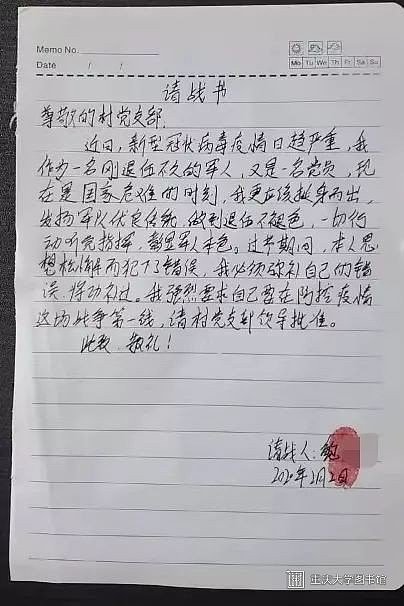 Memo No.
Mo Tu We Th Fr Sa Su
Date / /
请战书
尊敬的村党支部:
近日,新型冠状病毒疫情日趋严重,我
作为一名刚退伍不久的军人,又是一名党员,现
在是国家危难的时刻,我更应该挺身而出,
发扬军队优良传统,做到退伍不褪色,一切行
动听党指挥,彰显军人本色。过节期间,本人思
想松懈而犯下错误,我必须弥补自己的错
误,将功补过。我强烈要求自己要在防控疫情
这场战争第一线,请村党支部领导批准。
此致 敬礼!
请战人:鲍
2020年2月2日
重庆大学图书馆